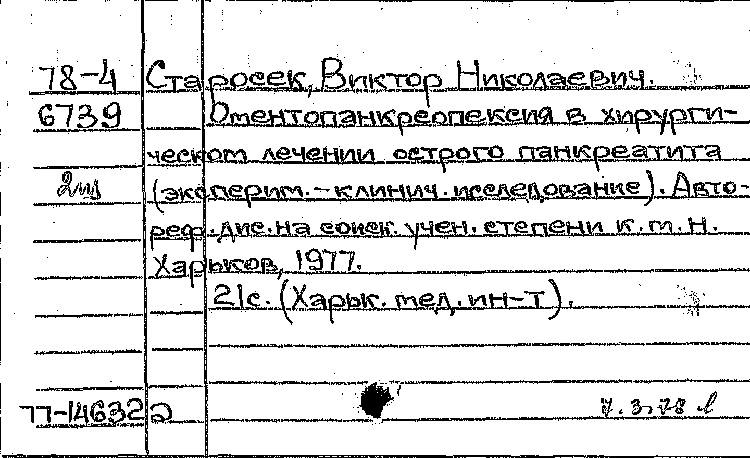 78-4 Старосек, Виктор Николаевич.
6739 Оментопанкреопексия в хирурги-
ческом лечении острого панкреатита
2 из (эксперим.-клинич. исследование). Авто-
реф. дис. на соиск. учен. степени к.т.н.
Харьков, 1977.
21с. (Харьк. мед. ин-т).
77-14632а 7.3.78